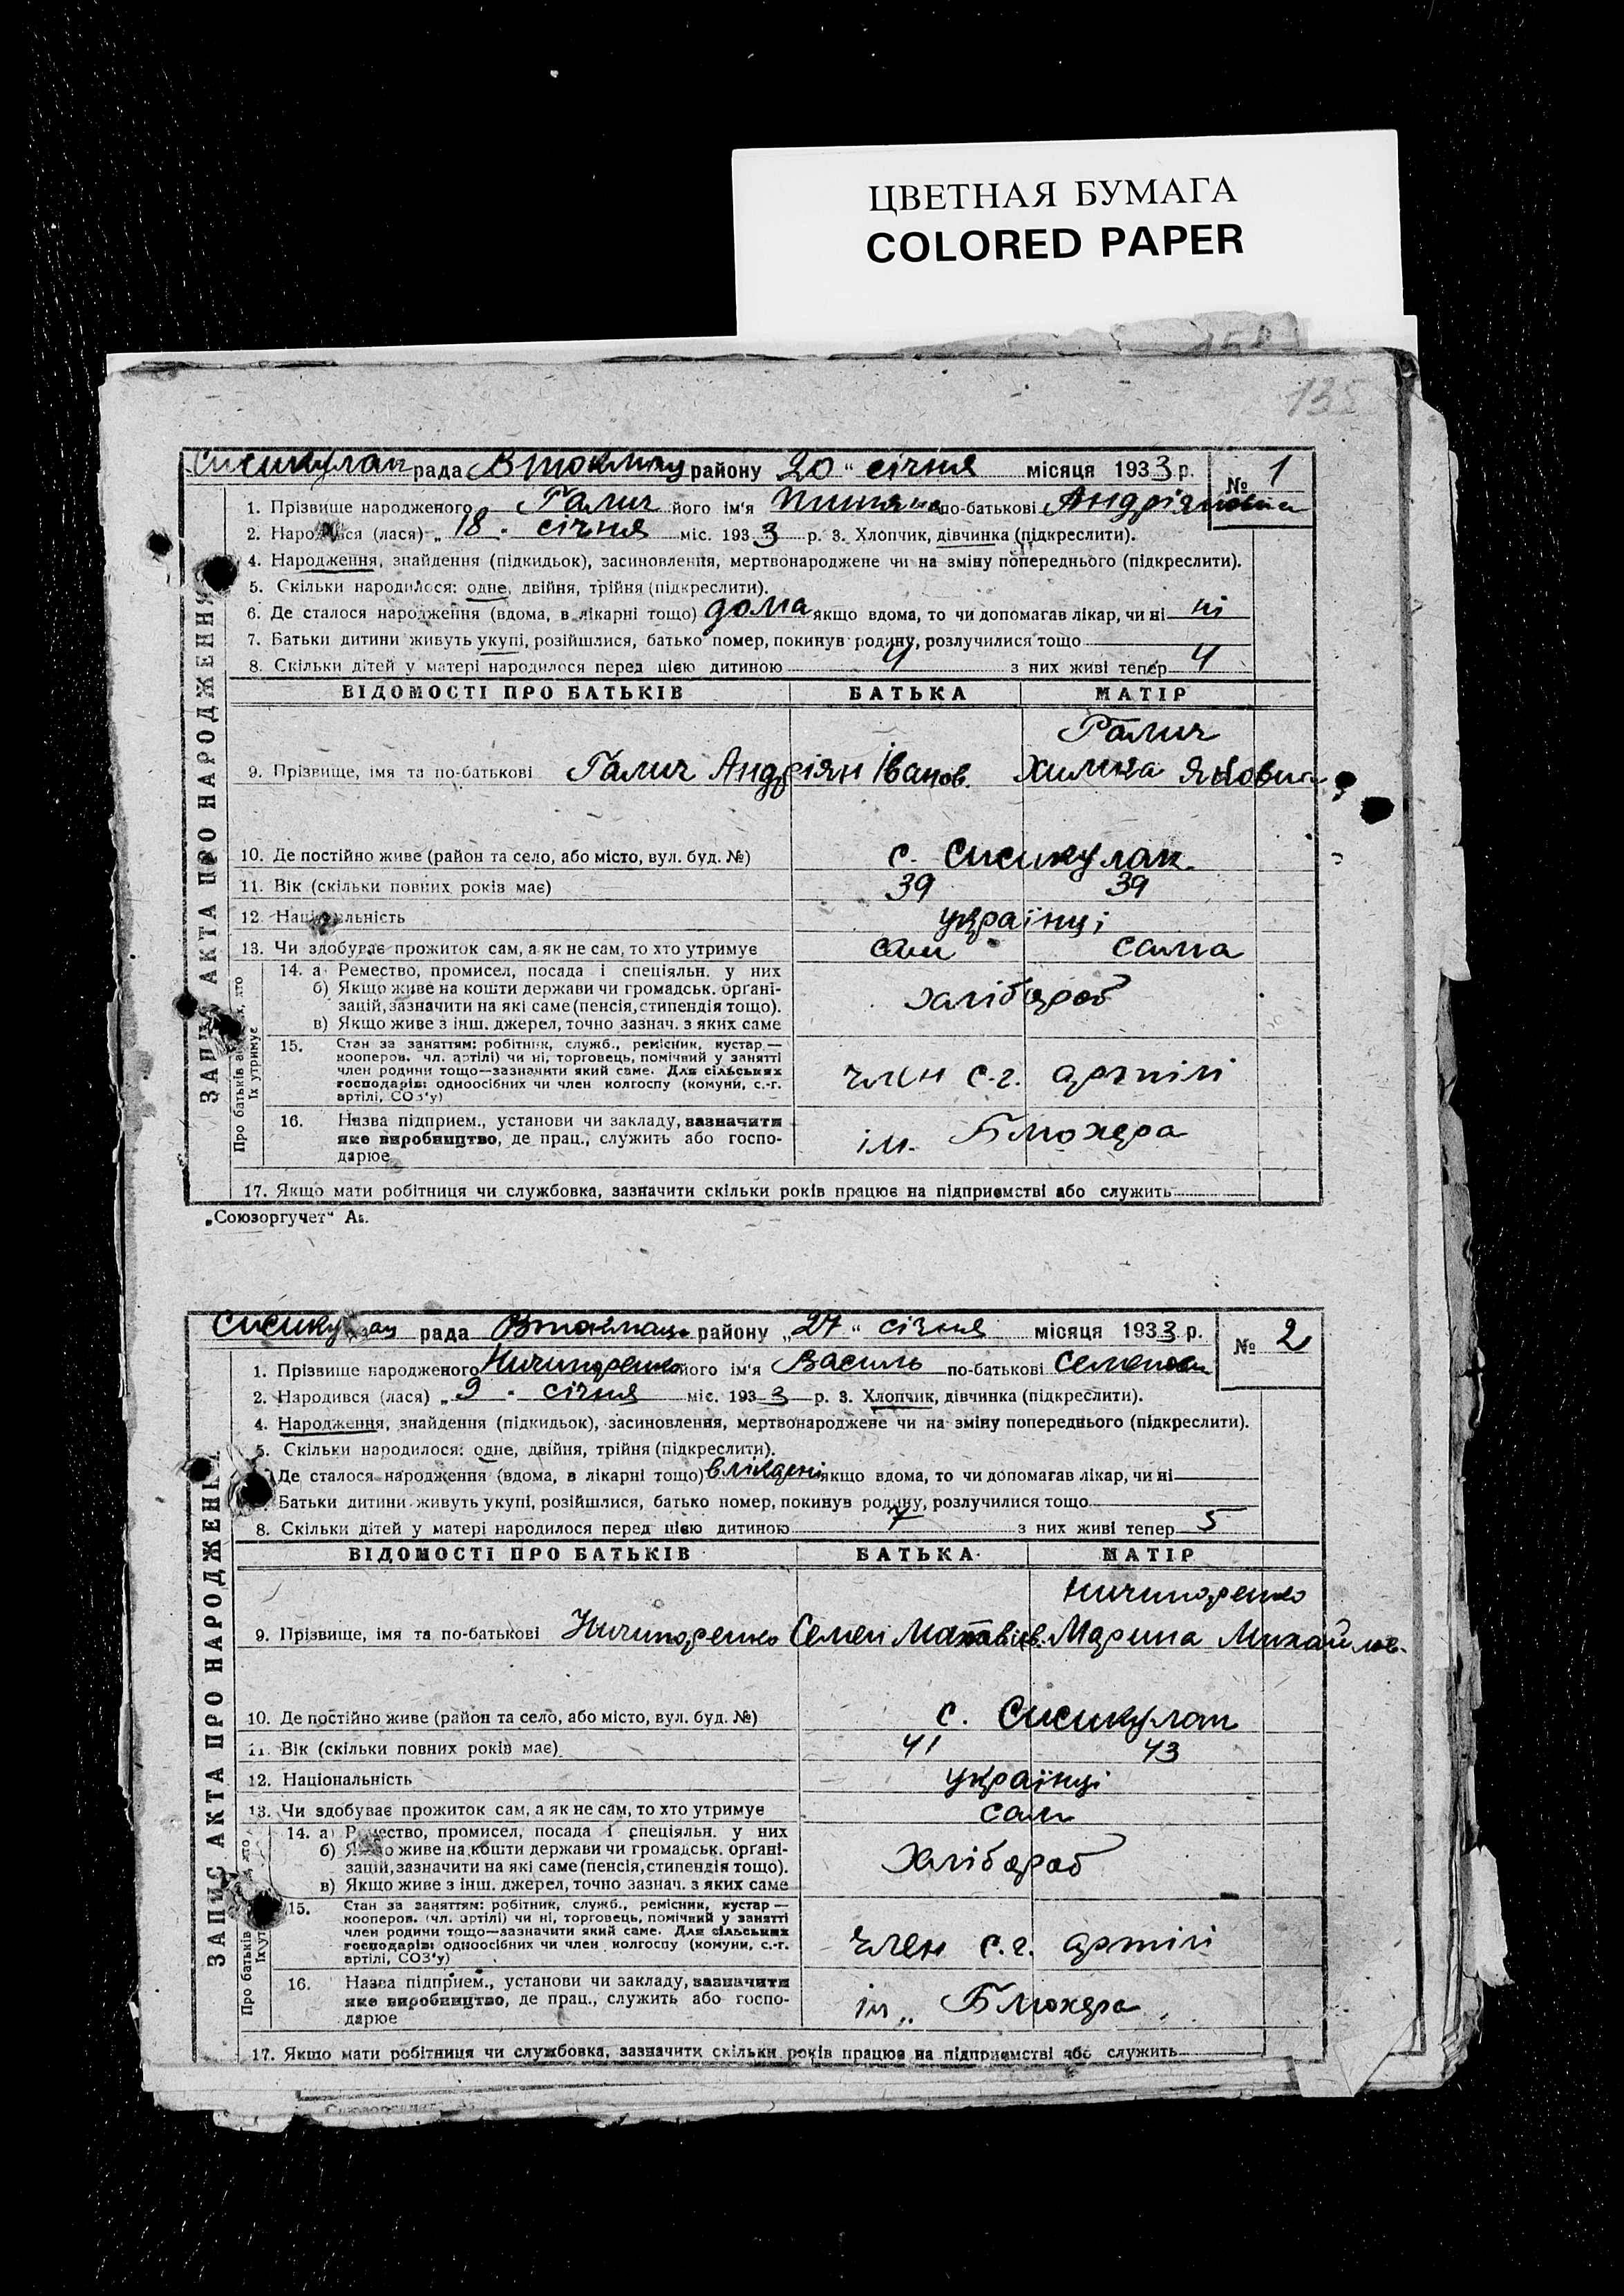 ЦВЕТНАЯ БУМАГА
COLORED PAPER
135
Сисикулак рада В токмац району 20 " січня місяця 1933 р. № 1
1. Прізвище народженого Галич його ім'я по-батькові Андріяновна
2. Народився (лася) „ 18 " січня міс. 1933 р. 3. Хлопчик, дівчинка (підкреслити).
4. Народження, знайдення (підкидьок), засиновлення, мертвонароджене чи на зміну попереднього (підкреслити).
5. Скільки народилося: одне, двійня, трійня (підкреслити).
6. Де сталося народження (вдома, в лікарні тощо) дома якщо вдома, то чи допомагав лікар, чи ні ні
7. Батьки дитини живуть укупі, розійшлися, батько помер, покинув родину, розлучилися тощо
8. Скільки дітей у матері народилося перед цією дитиною 4 з них живі тепер 4
ЗАПИС АКТА ПРО НАРОДЖЕННЯ
ВІДОМОСТІ ПРО БАТЬКІВ БАТЬКА МАТІР
Галич
9. Прізвище, імя та по-батькові Галич Андріян Іванов. Яковна
10. Де постійно живе (район та село, або місто, вул. буд. №) с. Сисикулак
11. Вік (скільки повних років має) 39 39
12. Національність українці
13. Чи здобуває прожиток сам, а як не сам, то хто утримує сам сама
Про батьків або тих, хто їх утримує
14. а) Ремество, промисел, посада і спеціяльн. у них
б) Якщо живе на кошти держави чи громадськ. органі-
зацій, зазначити на які саме (пенсія, стипендія тощо). хлібороб
в) Якщо живе з інш. джерел, точно зазнач. з яких саме
15. Стан за заняттям: робітник, служб., ремісник, кустар—
кооперов. чл. артілі) чи ні, торговець, помічний у занятті
член родини тощо—зазначити який саме. Для сільських
господарів: одноосібних чи член колгоспу (комуни, с.-г.
артілі, СОЗ'у) член с.-г. артілі
16. Назва підприєм., установи чи закладу, зазначити
яке виробництво, де прац., служить або госпо-
дарює ім. Блюхера
17. Якщо мати робітниця чи службовка, зазначити скільки років працює на підприємстві або служить
„Союзоргучет“
Сисикулак рада Втокмац. району „27 " січня місяця 1933 р. № 2
1. Прізвище народженого Ничипоренко його ім'я Василь по-батькові Семенови
2. Народився (лася) „ 9 " січня міс. 1933 р. 3. Хлопчик, дівчинка (підкреслити).
4. Народження, знайдення (підкидьок), засиновлення, мертвонароджене чи на зміну попереднього (підкреслити).
5. Скільки народилося: одне, двійня, трійня (підкреслити).
Де сталося народження (вдома, в лікарні тощо) в лікарні якщо вдома, то чи допомагав лікар, чи ні
Батьки дитини живуть укупі, розійшлися, батько помер, покинув родину, розлучилися тощо
8. Скільки дітей у матері народилося перед цією дитиною 7 з них живі тепер 5
ЗАПИС АКТА ПРО НАРОДЖЕННЯ
ВІДОМОСТІ ПРО БАТЬКІВ БАТЬКА МАТІР
Ничипоренко
9. Прізвище, імя та по-батькові Ничипоренко Семен Матвієв. Марина Михайлов.
10. Де постійно живе (район та село, або місто, вул. буд. №) с. Сисикулак
11. Вік (скільки повних років має) 41 43
12. Національність українці
13. Чи здобуває прожиток сам, а як не сам, то хто утримує сам
14. а) Ремество, промисел, посада і спеціяльн. у них
б) Якщо живе на кошти держави чи громадськ. органі-
зацій, зазначити на які саме (пенсія, стипендія тощо). хлібороб
в) Якщо живе з інш. джерел, точно зазнач. з яких саме
15. Стан за заняттям: робітник, служб., ремісник, кустар—
кооперов. (чл. артілі) чи ні, торговець, помічний у занятті
член родини тощо—зазначити який саме. Для сільських
господарів: одноосібних чи член колгоспу (комуни, с.-г.
артілі, СОЗ'у) член с.г. артілі
16. Назва підприєм., установи чи закладу, зазначити
яке виробництво, де прац., служить або госпо-
дарює ім. Блюхера
17. Якщо мати робітниця чи службовка, зазначити скільки років працює на підприємстві або служить